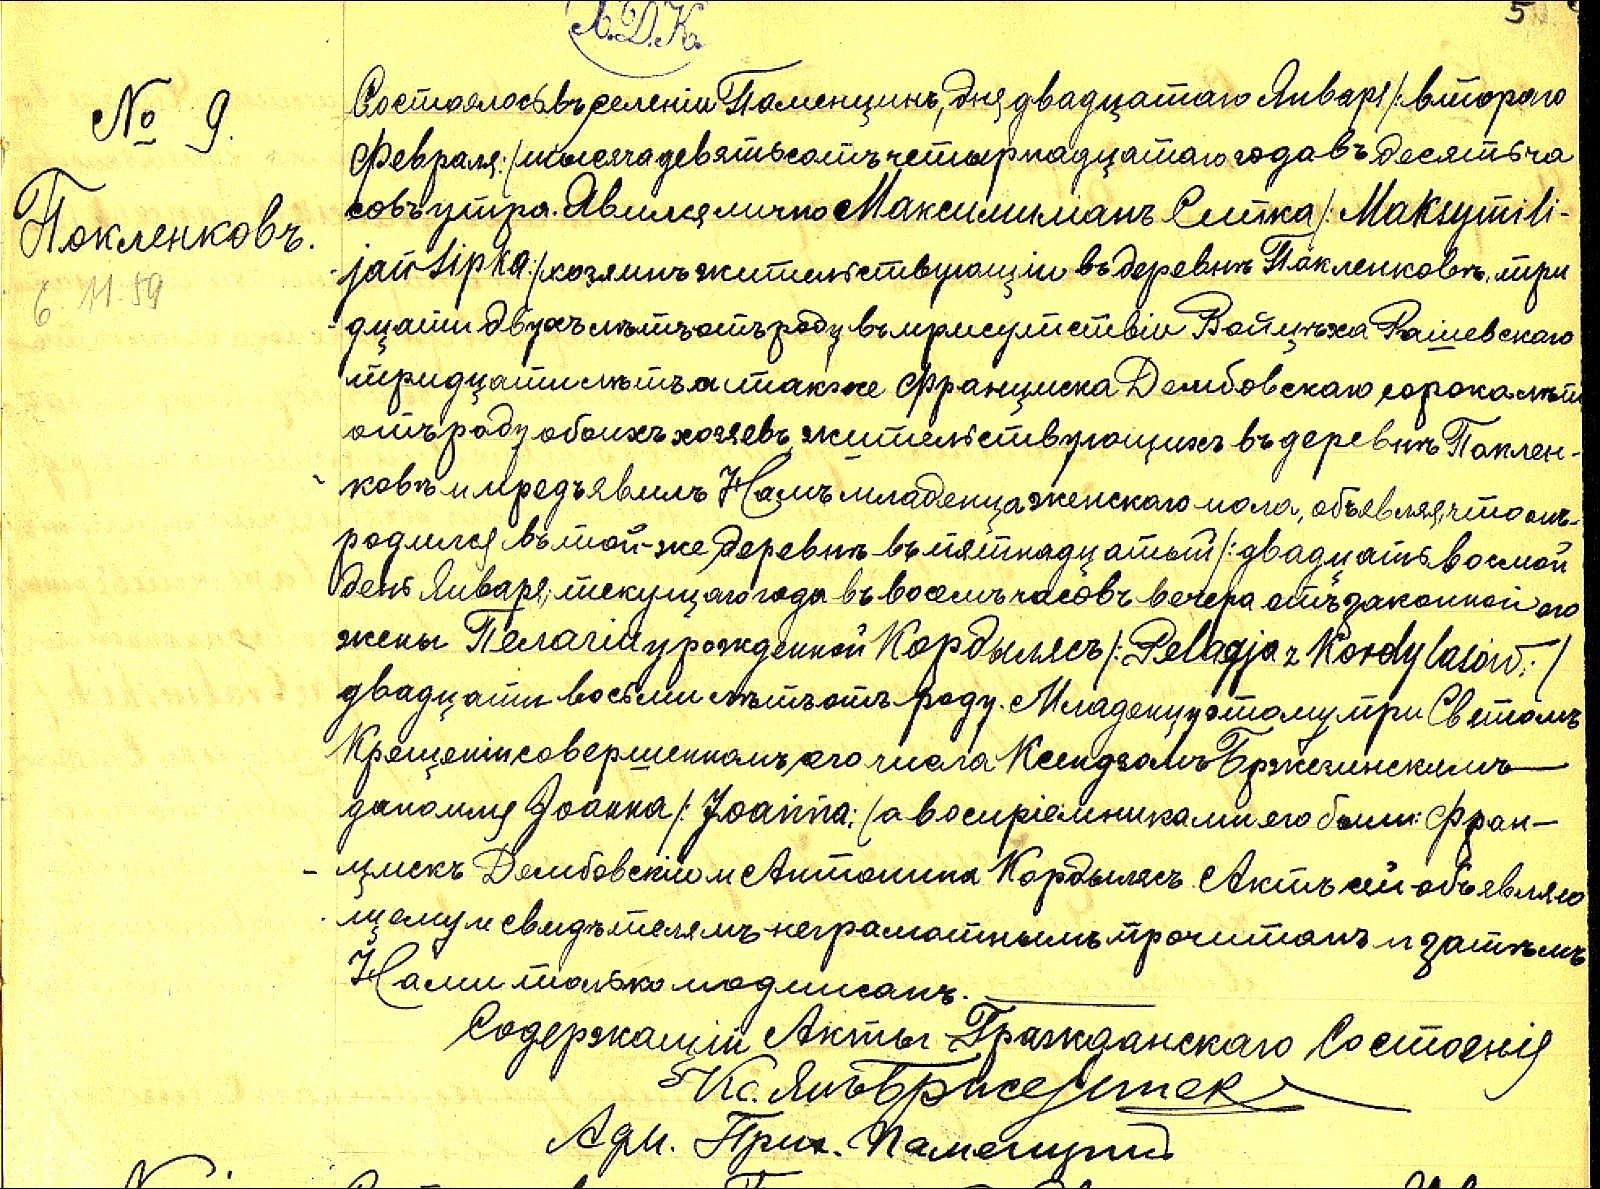 А.Д.К.
5
№ 9.
Покленковъ.
6 11.59
Состоялось въ селеніи Паменцинъ, дня двадцатаго Января /: втораго
Февраля :/ тысяча девятьсотъ четырнадцатаго года въ десять ча
совъ утра. Явился лично Максимиліанъ Сипка /: Maksymili-
jan Sipka :/ хозяинъ жительствующій въ деревнѣ Покленковѣ, три
дцати двухъ лѣтъ отъ роду въ присутствіи Войцѣха Рашевскаго
тридцати лѣтъ а также Франциска Дембовскаго сорока лѣтъ
отъ роду обоихъ хозяевъ, жительствующихъ въ деревнѣ Поклен-
ковѣ и предъявилъ Намъ младенца женскаго пола, объявляя, что онъ
родился въ той-же деревнѣ въ пятнадцатый /: двадцать восмой
день Января; текущаго года въ восемь часовъ вечера отъ законной его
жены Пелагіи урожденной Кордылясъ /: Pelagja z Kordylasów :/
двадцати восьми лѣтъ отъ роду. Младенцу этому при Святомъ
Крещеніи совершенномъ сего числа Ксендзомъ Бржезинскимъ
дано имя Іоанна /: Joanna :/ а воспріемниками его были: Фран-
цискъ Дембовскій и Антонина Кордылясъ. Актъ сей объявляю
щему и свидѣтелямъ неграмотнымъ прочитанъ и затѣмъ
Нами только подписанъ.
Содержащій Акты Гражданскаго Состоянія
Кс. Янъ
Адм. Прих.